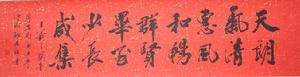 天朗
氣清
惠風
和暢
群賢
畢至
少長
咸集